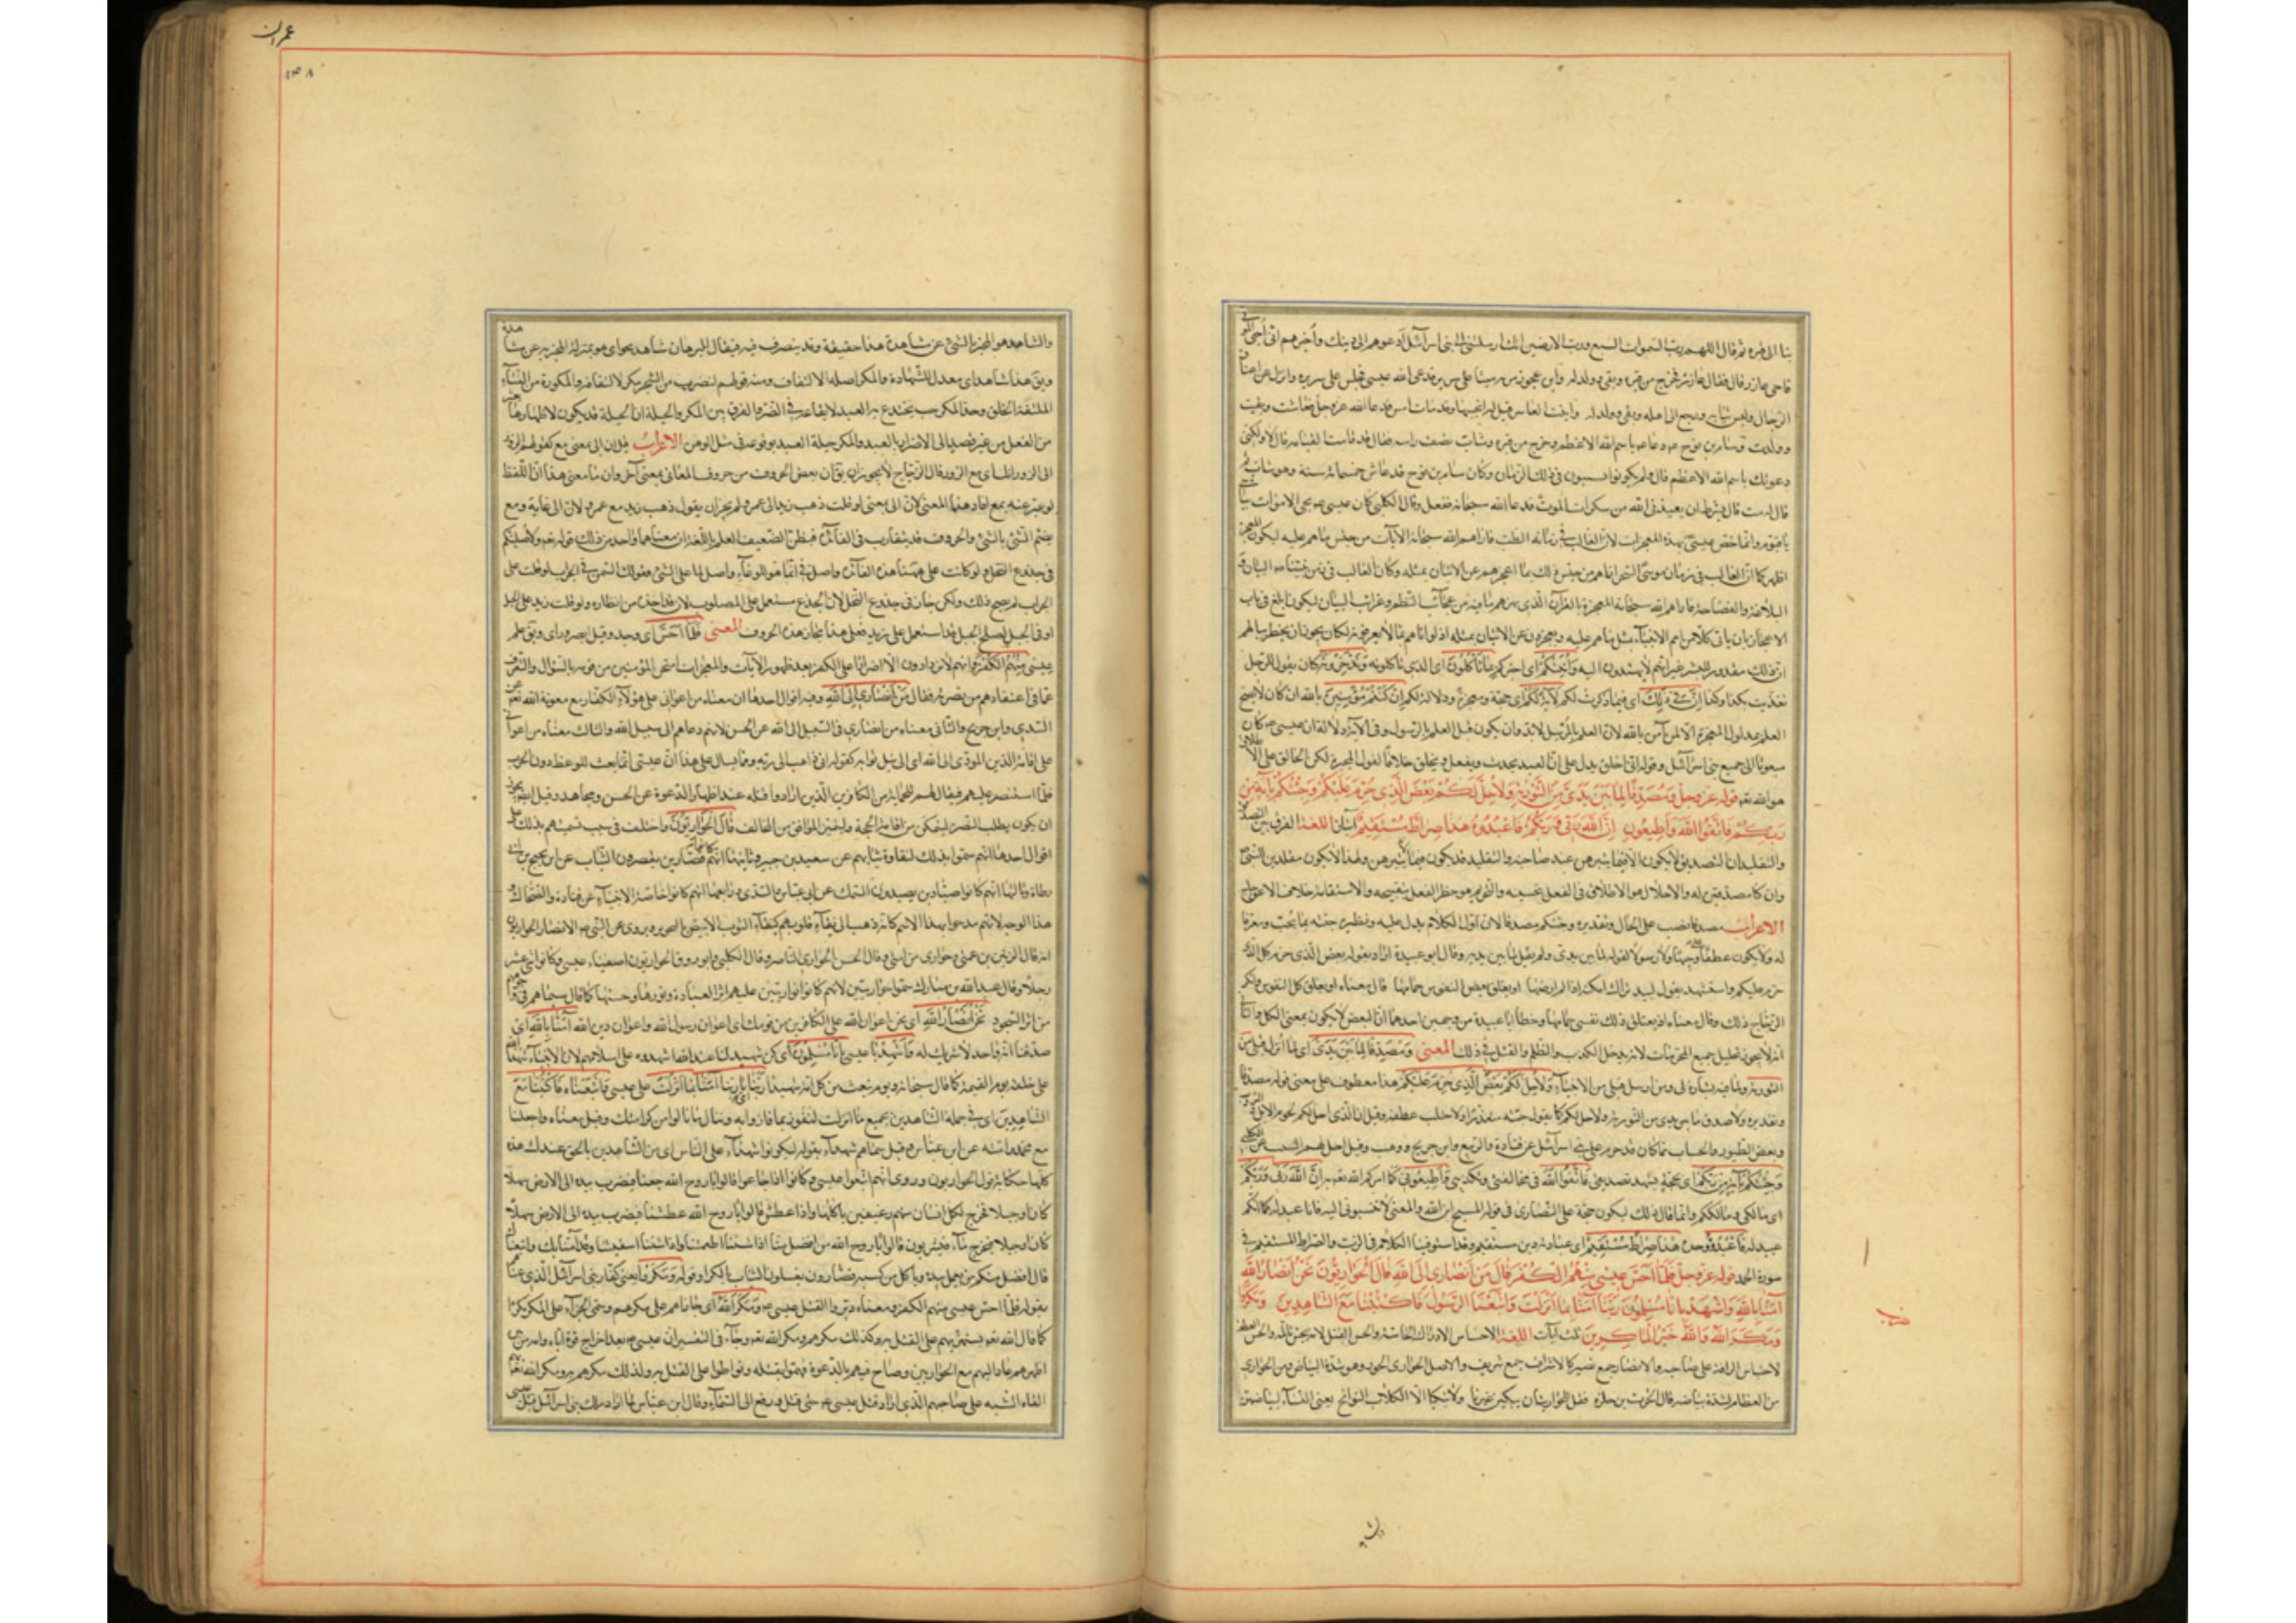 بنا الى قبره ثم قال اللهم رب السموات السبع ورب الارضين انك ارسلتنى الى بنى اسرآئيل ادعوهم الى دينك واخبرهم انى احيى الموتى
فاحى عازر قال فقام عازر فخرج من قبره وبقى وولد له وابن عجوز مر به ميتا على سرير فدعى الله عيسى فجلس على سريره ونزل عن اعناق
الرجال ولبس ثيابه ورجع الى اهله وبقى وولد له وابنة العاشر قيل له اتحييها وقد ماتت امس فدعا الله عز وجل فعاشت وبقيت
وولدت وسام بن نوح دعا باسم الله الاعظم فخرج من قبره وشاب نصف راسه فقال قد قامت القيامة قال لا ولكنى
دعوتك باسم الله الاعظم قال ولم يكونوا يشيبون فى ذلك الزمان وكان سام بن نوح قد عاش خمسمائة سنة وهو شاب ثم
قال له مت قال بشرط ان يعيذنى الله من سكرات الموت فدعا الله سبحانه ففعل وقال الكلبى كان عيسى يحيى الاموات بيا حى
يا قيوم وانما خص عيسى بهذه المعجزات لان الغالب فى زمانه الطب فاراهم الله سبحانه الآيات من جنس ما هم عليه ليكون المعجز
اظهر كما ان الغالب فى زمان موسى السحر اتاهم من جنس ذلك بما اعجزهم عن الاتيان بمثله وكان الغالب فى زمن نبينا البيان و
البلاغة والفصاحة فاراهم الله سبحانه المعجزة بالقرآن الذى بهرهم ما فيه من عجائب النظم وغرائب البيان ليكون ابلغ فى باب
الاعجاز بان ياتى كلا من امم الانبيآء بمثل ما هم عليه ويعجزون عن الاتيان بمثله اذ لو اتاهم بما لا يعرفونه لكان يجوز ان يخطر ببالهم
ان ذلك مقدور للبشر غير انهم لا يهتدون اليه وأنبئكم اى اخبركم بما تأكلون اى الذى تاكلونه وتدخرون كان يقول للرجل
تغذيت بكذا وكذا ان فى ذلك اى فيما ذكرت لكم لاية لكم اى حجة ومعجزة ودلالة لكم ان كنتم مؤمنين بالله ان كان لا يصح
العلم بمدلول المعجزة الا لمن آمن بالله لان العلم بالمرسل لابد وان يكون قبل العلم بالرسول وفى الآية دلالة ان عيسى كان
مبعوثا الى جميع بنى اسرآئيل وقوله انى اخلق يدل على ان العبد يحدث ويفعل ويخلق خلافا لقول المجبرة لكن الخالق على الاطلاق
هو الله تعو قوله عز وجل ومصدقا لما بين يدى من التورية ولاحل لكم بعض الذى حرم عليكم وجئتكم بآية من
ربكم فاتقوا الله واطيعون ان الله ربى وربكم فاعبدوه هذا صراط مستقيم آيتان اللغة الفرق بين التصديق
والتقليد ان التصديق لا يكون الا فيما يبرهن عند صاحبه والتقليد قد يكون فيما لم يبرهن ولهذا لا يكون مقلدين للنبى
وان كنا مصدقين له والاحلال هو الاطلاق فى الفعل بتحسينه والتحريم هو حظر الفعل بتقبيحه والاستقامة خلاف الاعوجاج
الاعراب مصدقا نصب على الحال وتقديره وجئتكم مصدقا لان اول الكلام يدل عليه ونظيره جئته بما يحب ومعرفا
له ولا يكون عطفا على وجيها ولا رسولا لقوله لما بين يدى ولم يقل لما بين يديه وقال ابو عبيدة اراد بقوله بعض الذى حرم كل الذى
حرم عليكم واستشهد بقول لبيد تراك امكنة اذا لم ارضها او يعتلق بعض النفوس حمامها قال معناه او يعتلق كل النفوس وانكر
الزجاج ذلك وقال معناه او يعتلق نفسى حمامها وخطأ ابا عبيدة من وجهين احدهما ان البعض لا يكون بمعنى الكل والثانى
انه لا يجوز تحليل جميع المحرمات لانه يدخل الكذب والظلم والقتل فى ذلك المعنى ومصدقا لما بين يدى اى لما انزل قبلى من
التورية وما فيه البشارة بى ومن ارسل قبلى من الانبيآء ولاحل لكم بعض الذى حرم عليكم هذا معطوف على معنى قوله مصدقا
وتقديره ولاصدق ما بين يدى من التورية ولاحل لكم كما يقول جئته معتذرا ولاجتلب عطفه وقيل ان الذى احل لكم لحوم الابل والثروب
وبعض الطيور والحيتان مما كان قد حرم على بنى اسرآئيل عن قتادة والربيع وابن جريج ووهب وقيل احل لهم السبت عن الكلبى
وجئتكم بآية من ربكم اى بحجة تشهد بصدقى فاتقوا الله فى مخالفتى وتكذيبى واطيعون كما امركم الله تعو به ان الله ربى وربكم
اى مالكى ومالككم وانما قال ذلك ليكون حجة على النصارى فى قوله المسيح ابن الله والمعنى لا تنسبونى اليه فانا عبد له كما انكم
عبيد له فاعبدوه وحده هذا صراط مستقيم اى عبادته دين مستقيم وقد استوفينا الكلام فى الرب والصراط المستقيم فى
سورة الحمد قوله عز وجل فلما احس عيسى منهم الكفر قال من انصارى الى الله قال الحواريون نحن انصار الله
آمنا بالله واشهد بانا مسلمون ربنا آمنا بما انزلت واتبعنا الرسول فاكتبنا مع الشاهدين ومكروا
ومكر الله والله خير الماكرين ثلث آيات اللغة الاحساس الادراك بالحاسة والحس القتل لانه يحس بالمه والحس العطف
لاحساس الرافة على صاحبه والانصار جمع نصير كالاشراف جمع شريف والاصل الحوارى الحور وهو شدة البياض ومن الحوارى
من الطعام لشدة بياضه قال الحرث بن حلزة فقل للحواريات يبكين غيرنا ولا تبكنا الا الكلاب النوابح يعنى النسآء لبياضهن
عمران
والشاهد هو المخبر بالشئ عن مشاهدة هذا حقيقة وقد يتصرف فيه فيقال البرهان شاهد بحق اى هو بمنزلة المخبر به عن مشاهدة
ويق هذا شاهد اى معد للشهادة والمكر اصله الالتفاف ومنه قولهم لضرب من الشجر مكر لالتفافه والممكورة من النسآء
الملتفة الخلق وحد المكر خب يختدع به العبد لايقاعه فى الضر والفرق بين المكر والحيلة ان الحيلة قد يكون لاظهار ما يعسر
من الفعل من غير قصد الى الاضرار بالعبد والمكر حيلة العبد توقعه فى مثل الوهن الاعراب قيل ان الى بمعنى مع كقولهم الذود
الى الذود ابل اى مع الذود قال الزجاج لا يجوز ان يق ان بعض الحروف من حروف المعانى بمعنى آخر وان ما معنى هذا ان اللفظ
لو عبر عنه بمع افاد هذا المعنى لان الى بمعنى لو قلت ذهب زيد الى عمرو لم يجز ان يقول ذهب زيد مع عمرو لان الى غاية ومع
يضم الشئ بالشئ والحروف قد يتقارب فى الفآئدة فيظن الضعيف العلم باللغة ان معناهما واحد من ذلك قوله تعو ولاصلبنكم
فى جذوع النخل ولو كانت على ههنا هذه الفآئدة واصل فى انما هو للوعآء واصل على لما على الشئ وقولك التمر فى الجراب لو قلت على
الجراب لم يصح ذلك ولكن جاز فى جذوع النخل لان الجذع مشتمل على المصلوب لانه قد اخذه من اقطاره ولو قلت زيد على الجبل
او فى الجبل لصلح لان الجبل قد اشتمل على زيد فعلى هذا مجاز هذه الحروف المعنى فلما احس اى وجد وقيل ابصر وراى ويق علم
عيسى منهم الكفر وانهم لا يزدادون الا اصرارا على الكفر بعد ظهور الآيات والمعجزات امتحن المؤمنين من قومه بالسؤال والتعرف
عما فى اعتقادهم من نصرته فقال من انصارى الى الله وفيه اقوال احدها ان معناه من اعوانى على هؤلآء الكفار مع معونة الله تعو عن
السدى وابن جريج والثانى معناه من انصارى فى السبيل الى الله عن الحسن لانه دعاهم الى سبيل الله والثالث معناه من اعوانى
على اقامة الدين المؤدى الى الله اى الى نيل ثوابه كقوله انى ذاهب الى ربى ومما يسال على هذا ان عيسى انما بعث للوعظ دون الحرب
فلما استنصر عليهم فيقال لهم للحماية من الكافرين الذين ارادوا قتله عند اظهار الدعوة عن الحسن ومجاهد وقيل ايضا يجوز
ان يكون يطلب النصرة ليتمكن من اقامة الحجة وليتميز الموافق من المخالف قال الحواريون واختلف فى سبب تسميتهم بذلك على
اقوال احدها انهم سموا بذلك لنقاوة ثيابهم عن سعيد بن جبير وثانيها انهم كانوا قصارين يبيضون الثياب عن ابن نجيح عن
ارطاة وثالثها انهم كانوا صيادين يصيدون السمك عن ابن عباس والسدى ورابعها انهم كانوا خاصة الانبيآء عن قتادة والضحاك و
هذا الوجه لانهم مدحوا بهذا الاسم كانه ذهب الى نقآء قلوبهم كنقآء الثوب الابيض بالتحوير ويروى عن النبى
انه قال الزبير ابن عمتى وحوارى من امتى وقال الحسن الحوارى الناصر وقال الكلبى وابو روق الحواريون اصفيآء عيسى وكانوا اثنى عشر
رجلا وقال عبد الله بن مبارك سموا حواريين لانهم كانوا نورانيين عليهم اثر العبادة ونورها وحسنها كما قال سيماهم فى وجوههم
من اثر السجود نحن انصار الله اى نحن اعوان الله على الكافرين من قومك اى اعوان رسول الله واعوان دين الله آمنا بالله اى
صدقنا انه واحد لا شريك له واشهد يا عيسى بانا مسلمون اى كن شهيدا لنا عند الله اشهدوه على اسلامهم لان الانبيآء شهدآء
على خلقه يوم القيمة كما قال سبحانه ويوم نبعث من كل امة شهيدا ربنا اى يا ربنا آمنا بما انزلت على عيسى واتبعناه فاكتبنا مع
الشاهدين اى فى جملة الشاهدين بجميع ما انزلت لنفوز بما فازوا به وننال ما نالوا من كرامتك وقيل معناه واجعلنا
مع محمد وامته عن ابن عباس وقيل سماهم شهدآء بقوله ليكونوا شهدآء على الناس اى من الشاهدين بالحق عندك هذه
كلها حكاية قول الحواريون وروى انهم اتبعوا عيسى وكانوا اذا جاعوا قالوا يا روح الله جعنا فيضرب بيده الى الارض سهلا
كان او جبلا فيخرج لكل انسان منهم رغيفين ياكلهما واذا عطش قالوا يا روح الله عطشنا فيضرب بيده الى الارض سهلا
كان او جبلا فيخرج مآء فيشربون قالوا يا روح الله من افضل منا اذا شئنا اطعمتنا واذا شئنا اسقيتنا وقد آمنا بك واتبعناك
قال افضل منكم من يعمل بيده وياكل من كسبه فصاروا يغسلون الثياب بالكرا وقوله ومكروا يعنى كفار بنى اسرآئيل الذى عناهم
بقوله فلما احس عيسى منهم الكفر ومعناه دبروا القتل عيسى ومكر الله اى جازاهم على مكرهم وسمى الجزآء على المكر مكرا
كما قال الله تعو يستهزئ بهم على القتل به وكذلك مكرهم ومكر الله تعو وجآء فى التفسير ان عيسى بعد اخراج قومه اياه وامه من بين
اظهرهم عاد اليهم مع الحواريين وصاح فيهم بالدعوة فهموا بقتله وتواطوا على القتل به ولذلك مكرهم به ومكر الله تعو بهم
القاء الشبه على صاحبهم الذى اراد قتل عيسى حتى قتل ورفع الى السمآء وقال ابن عباس لما اراد ملك بنى اسرآئيل قتل عيسى